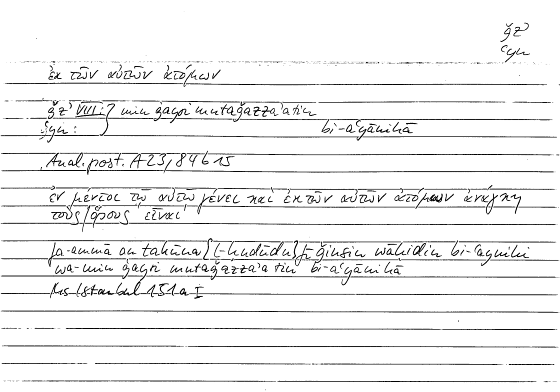 ǧzʾ
ʿyn
ἐκ τῶν αὐτῶν ἀτόμων
ǧzʾ VIII: } min ġayri mutaǧazzaʾatin
ʿyn: bi-aʿyānihā
Anal. post. A 23, 84 b 15
ἐν μέντοι τῷ αὐτῷ γένει καὶ ἐκ τῶν αὐτῶν ἀτόμων ἀνάγκη
τοὺς ὅρους εἶναι
fa-ammā an takūna (l-ḥudūdu) fī ǧinsin wāḥidin bi-ʿaynihi
wa-min ġayri mutaǧazzaʾatin bi-aʿyānihā
Ms Istanbul 151a I